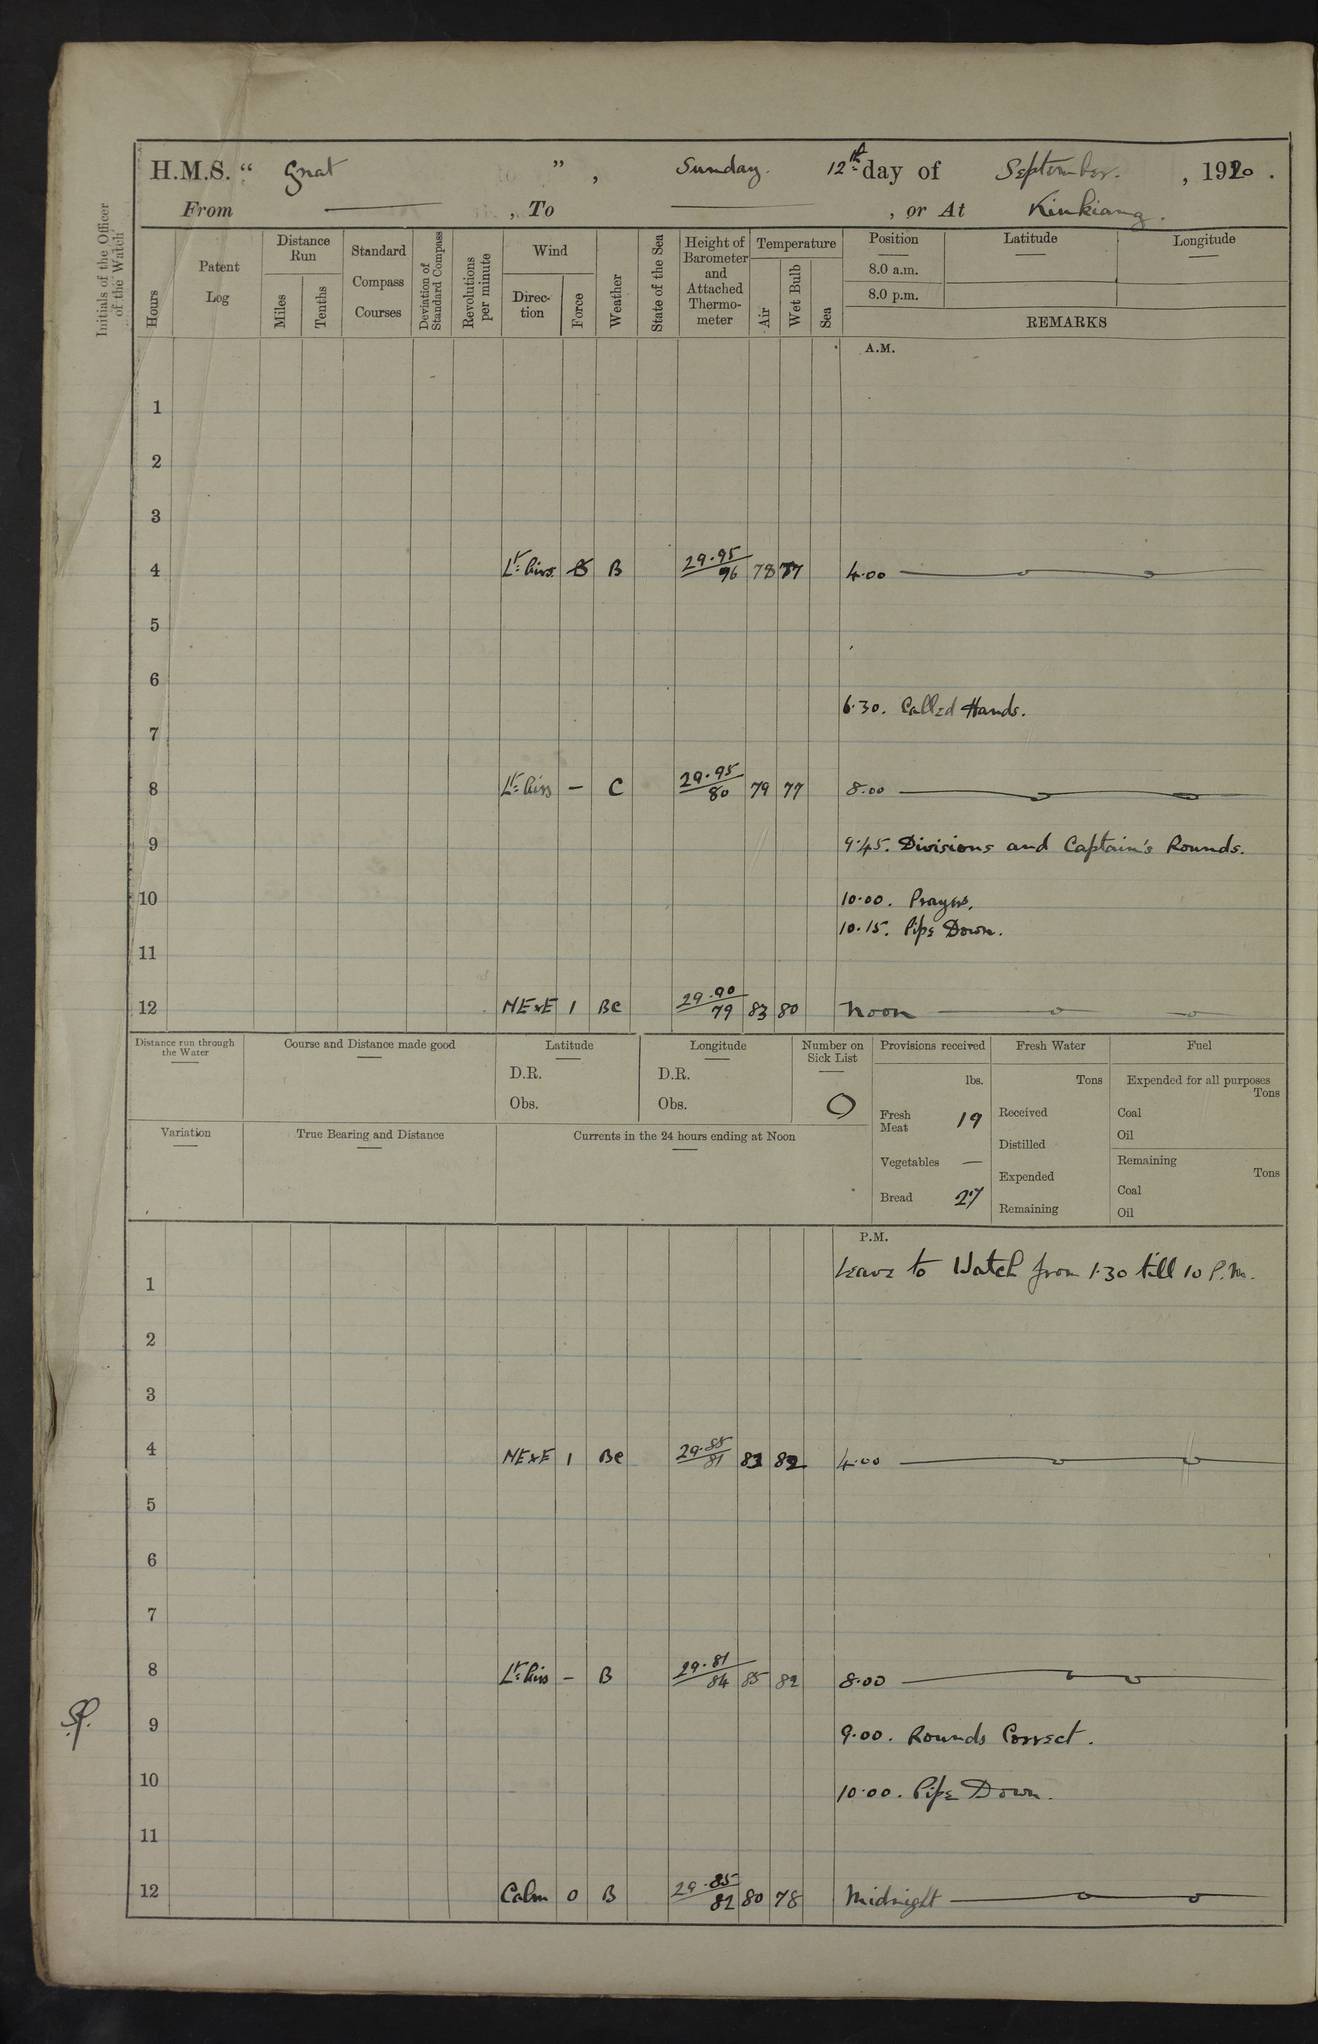 H.M.S. " Gnat " , Sunday. 12th day of September. , 1920 .
From , To , or At Kiukiang.
Initials of the Officer of the Watch
Hours
Patent Log
Distance Run
Miles
Tenths
Standard Compass Courses
Deviation of Standard Compass
Revolutions per minute
Wind
Direc-tion
Force
Weather
State of the Sea
Height of Barometer and Attached Thermo-meter
Temperature
Air
Wet Bulb
Sea
Position
8.0 a.m.
8.0 p.m.
Latitude
Longitude
REMARKS
A.M.
1
2
3
4 Lt. Airs. B 29.95 96 78 77 4.00
5
6
6.30. Called Hands.
7
8 Lt. Airs — C 29.95 80 79 77 8.00
9 9.45. Divisions and Captain's Rounds.
10 10.00. Prayers.
10.15. Pipe Down.
11
12 NExE 1 BC 29.90 79 83 80 Noon
Distance run through the Water
Course and Distance made good
Latitude
D.R.
Obs.
Longitude
D.R.
Obs.
Number on Sick List
0
Provisions received
lbs.
Fresh Meat 19
Vegetables —
Bread 27
Fresh Water
Tons
Received
Distilled
Expended
Remaining
Fuel
Expended for all purposes
Tons
Coal
Oil
Remaining
Tons
Coal
Oil
Variation
True Bearing and Distance
Currents in the 24 hours ending at Noon
P.M.
Leave to Watch from 1.30 till 10 P.M.
1
2
3
4 NExE 1 BC 29.85 81 83 82 4.00
5
6
7
8 Lt. Airs — B 29.81 84 85 82 8.00
9 9.00. Rounds Correct.
10 10.00. Pipe Down.
11
12 Calm 0 B 29.85 82 80 78 Midnight